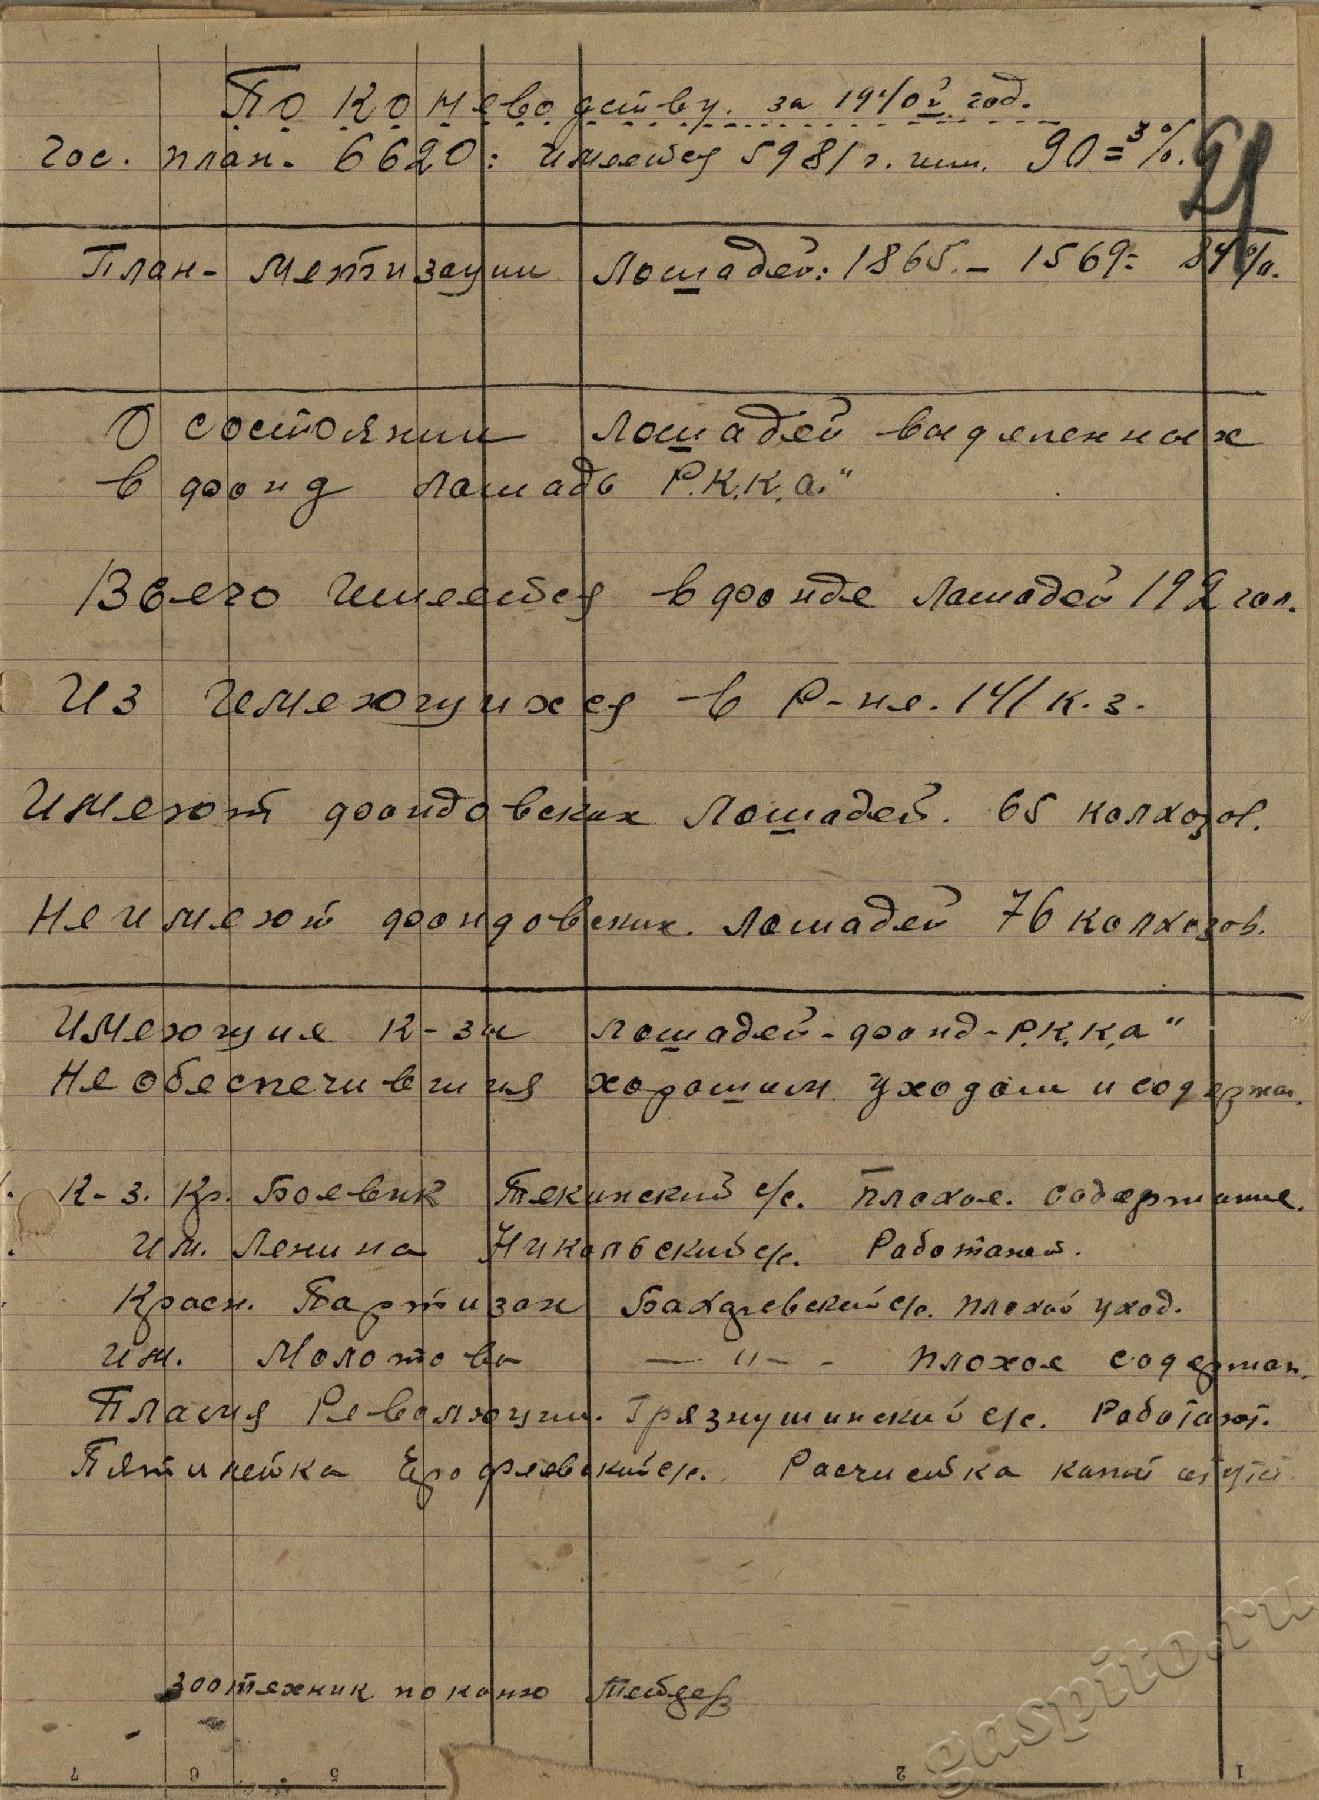 По коневодству. за 1940й год.
Гос. план. 6620: имеется 5981 г. или. 90=3%.
21
План- метизации лошадей: 1865. – 1569= 84%.
О состоянии лошадей выделенных
в фонд лашадь Р.К.К.А."
Всего имеется в фонде лашадей 192 гол.
Из имеющихся в Р-не. 141 к.з.
Имеют фондовских лошадей. 65 колхозов.
Не имеют фондовских. лошадей 76 колхозов.
Имеющие к-зы лошадей-фонд-Р.К.К.А"
Не обеспечившия хорошим уходом и содержан.
К-з. Кр. Боевик Текинский с/с. плохое. содержание.
им. Ленина Никольский с/с. Работают.
Красн. Партизан с/с. плохой уход.
им. Молотова — " — - плохое содержан.
Пламя Революции. Грязнушинский с/с. Работают.
Пятилетка Ерофеевский с/с. Расчистка копыт
зоотехник по коню
7 6 5 2 1
gaspito.ru